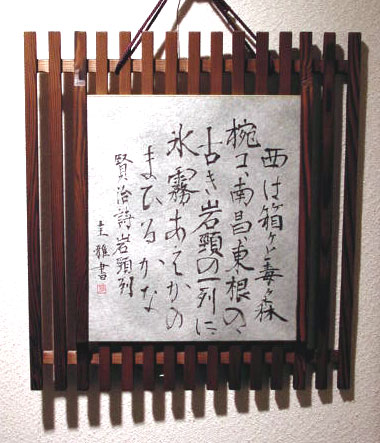 西は箱ヶと毒ヶ森
椀コ、南昌、東根の、
古き岩頸の一列に
氷霧あえかの
まひるかな
賢治詩岩頸列
圭雅書